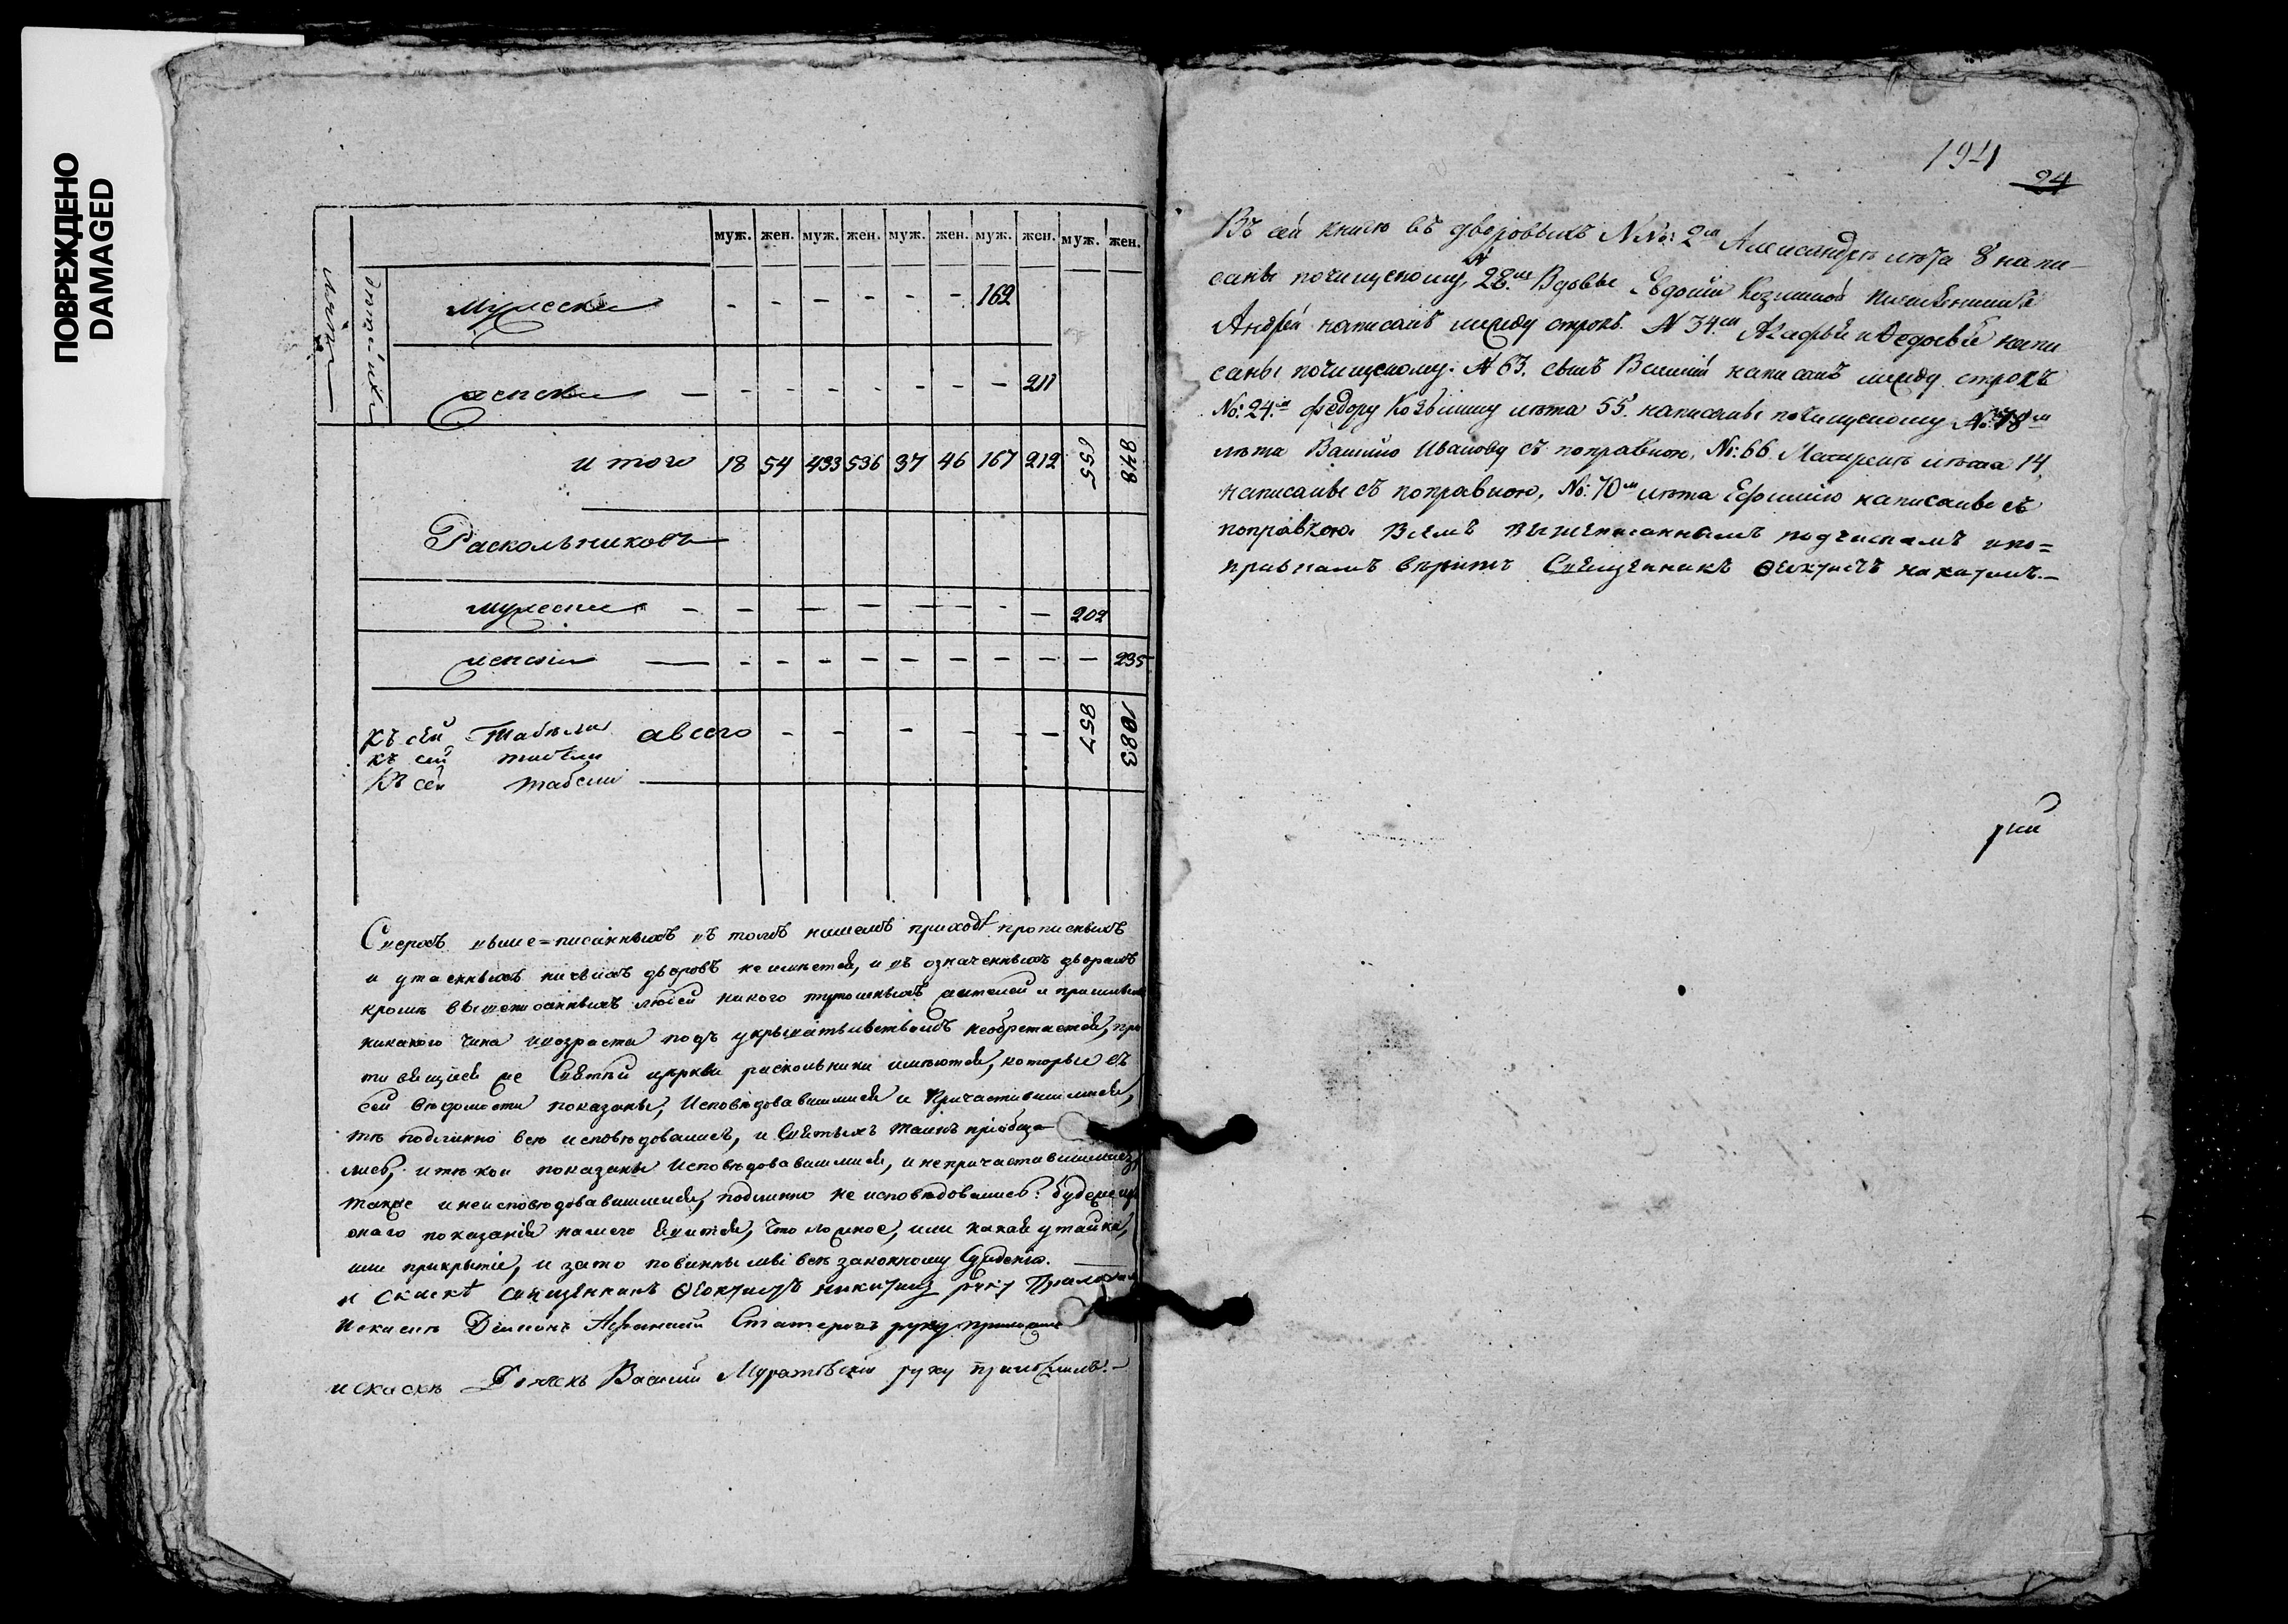 ПОВРЕЖДЕНО
DAMAGED
муж. жен. муж. жен. муж. жен. муж. жен. муж. жен.
мужеска - - - - - - 162
женска - - - - - - - - 211
и того 18 54 433 536 37 46 167 212 655 848
Раскольниковъ
мужеска - - - - - - - - 202
женска - - - - - - - - - 235
Къ сей табели а всего - - - - - 857 1083
къ сей табели
Къ сей табели
Сверхъ выше=писанныхъ въ томъ нашемъ приходѣ прописныхъ
и утаенныхъ ничьихъ дворовъ не имѣется, и въ означенныхъ дворахъ
кромѣ вышеписанныхъ людей никого тутошныхъ жителей и пришлыхъ
никакого чина и возраста подъ укрывательствомъ необретается, про
тивящіеся же Святѣй церкви раскольники имѣются, которые въ
сей вѣдомости показаны, Исповѣдовавшимися и Причастившимися,
тѣ подлинно всѣ исповѣдовались, и Святыхъ таинъ пріобща
лись, и тѣ кои показаны исповѣдовавшимися, и непричастившимися,
также и неисповѣдовавшимися, подлинно не исповѣдовались: Будеже изъ
онаго показанія нашего явится, что ложное, или какая утайка,
или прикрытіе, и зато повинны мы всѣ законному сужденію.
и Скаскѣ священникъ Ѳеоктистъ никитинъ руку Приложилъ
И скаскѣ Дьяконъ Афанасій руку приложилъ
и скаскѣ Дьячекъ Василій Муратовскій руку приложилъ.
194
94
Въ сей книгѣ въ дворовыхъ NNo: 2м Александрѣ лѣта 8 напи-
саны почищеному, № 28м Вдовы Евдокіи Козминой племянникъ
Андрей написанъ между строкъ. № 34м Агафьи и Федосьи напи
саны почищеному. № 63. сынъ Василій написанъ между строкъ
No: 24м Федору Козмину лѣта 55. написаны почищеному No: 78м
лѣта Василію Иванову съ поправкою, No: 66. лѣта 14.
написаны съ поправкою, No: 70м лѣта Ефимію написаны съ
поправкою. Всѣмъ вышеписаннымъ подчискамъ и по=
правкамъ вѣрить Священникъ Ѳеоктистъ никитинъ.-